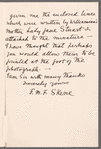 given me the enclosed lines
which were written by Williamina's
Mother Lady Jane Stuart &
attached to the miniature —
I have thought that perhaps
you would allow them to be
printed at the foot of the
photograph —
I am Sir with many thanks
sincerely yours
F. M. F. Skene